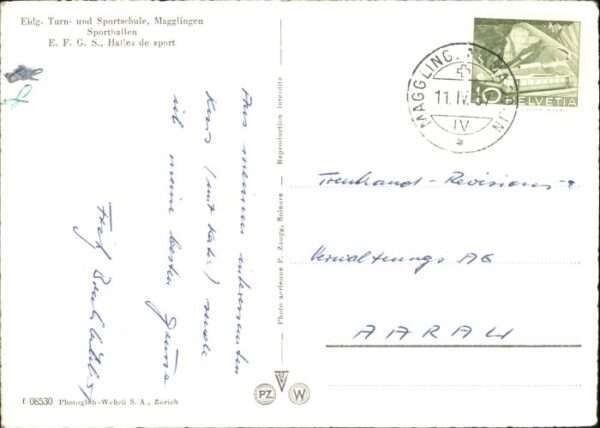 Eidg. Turn- und Sportschule, Magglingen
Sporthallen
E. F. G. S., Halles de sport
Aus meinem interessanten
Kurs (mit Kater!) sende
ich meine besten Grüsse
Fritz
Photo aerienne P. Zaugg, Solaure — Reproduction interdite
MAGGLINGEN
11. IV. 5
IV
10 HELVETIA
Treuhand- Revisions- &
Verwaltungs AG
AARAU
PZ
W
f 08530 Photoglob-Wehrli S. A., Zurich